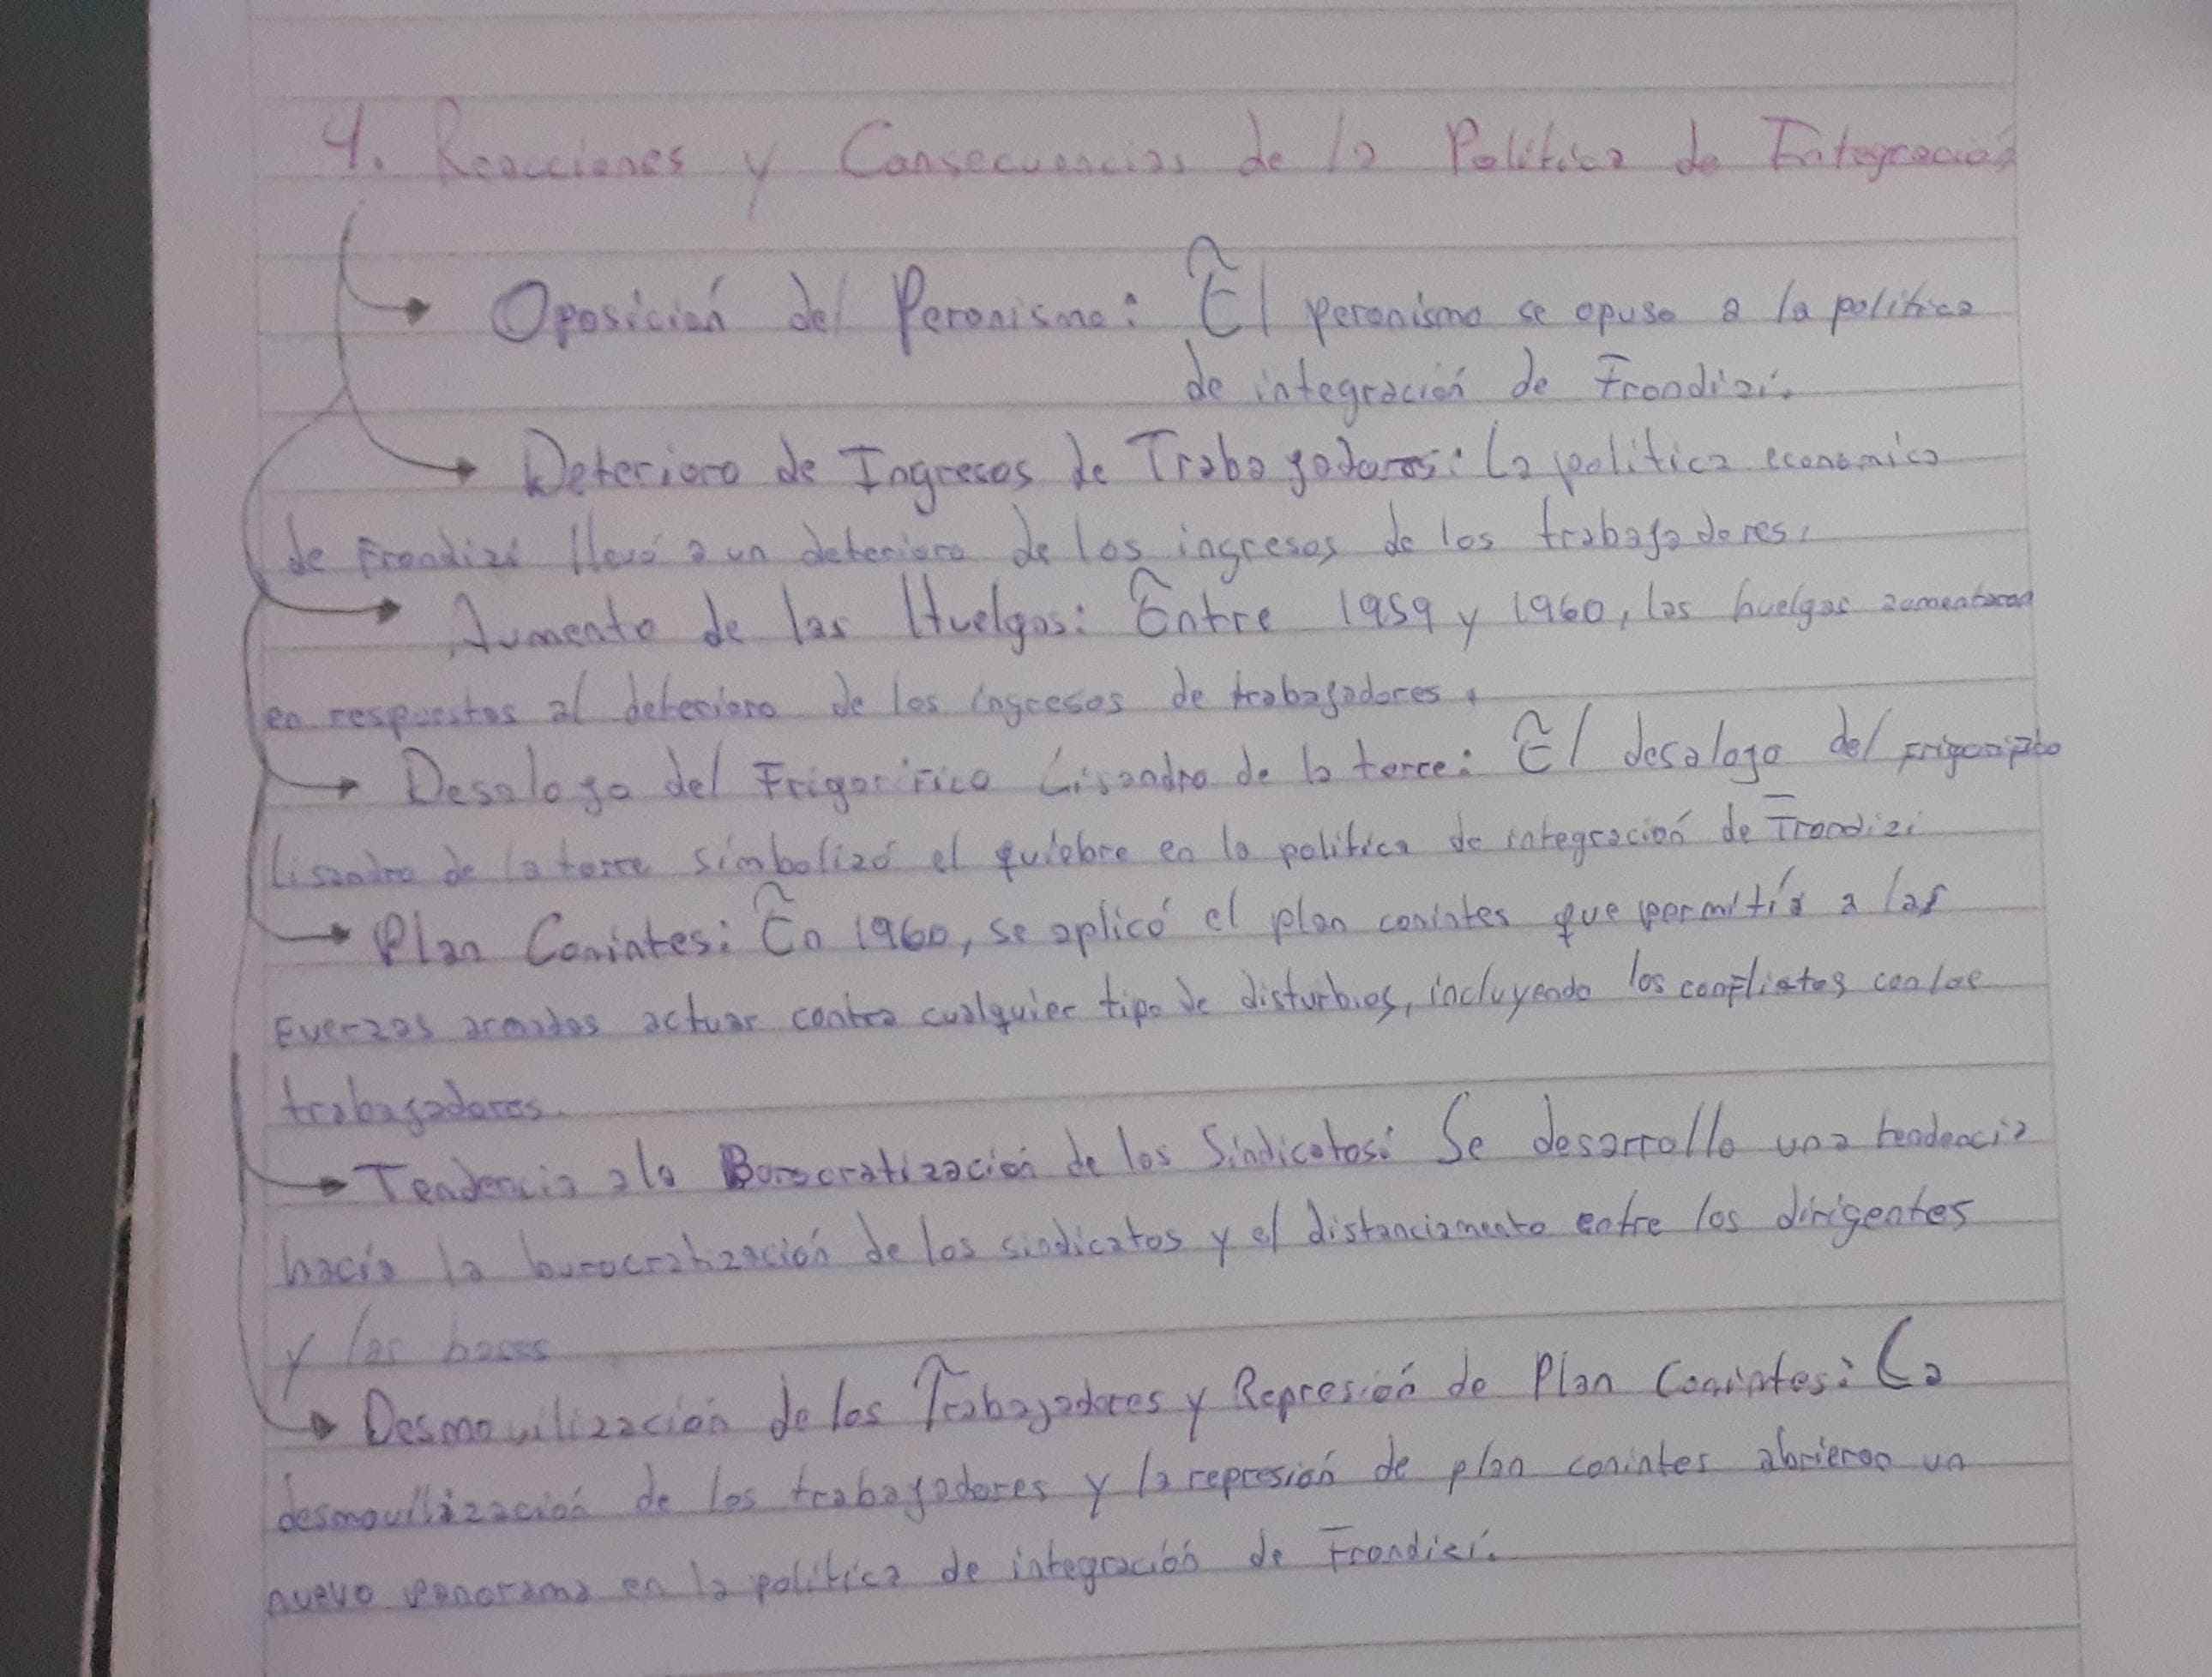 4. Reacciones y Consecuencias de la Política de Integración
Oposición del Peronismo: El peronismo se opuso a la política
de integración de Frondizi.
Deterioro de Ingresos de Trabajadores: La política economica
de Frondizi llevó a un deterioro de los ingresos de los trabajadores.
Aumento de las Huelgas: Entre 1959 y 1960, las huelgas aumentaron
en respuestas al deterioro de los ingresos de trabajadores.
Desalojo del Frigorífico Lisandro de la torre: El desalojo del frigorifico
Lisandro de la torre simbolizó el quiebre en la política de integración de Frondizi
Plan Conintes: En 1960, se aplicó el plan conintes que permitía a las
Fuerzas armadas actuar contra cualquier tipo de disturbios, incluyendo los conflictos con los
trabajadores.
Tendencia a la Burocratización de los Sindicatos: Se desarrollo una tendencia
hacía la burocratización de los sindicatos y el distanciamento entre los dirigentes
y las bases
Desmovilización de los Trabajadores y Represión de Plan Conintes: La
desmovilización de los trabajadores y la represión de plan conintes abrieron un
nuevo panorama en la política de integración de Frondizi.